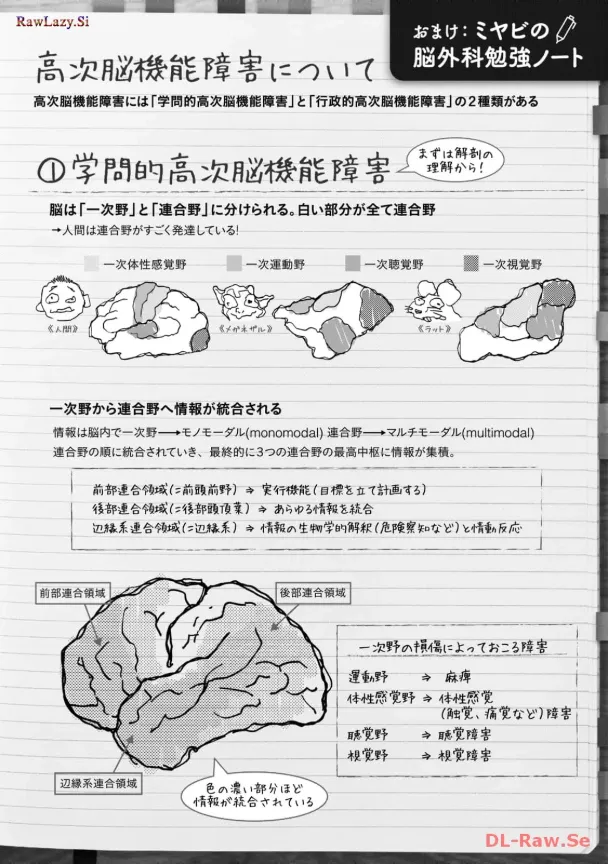 RawLazy.Si
おまけ:ミヤビの
脳外科勉強ノート
高次脳機能障害について
高次脳機能障害には「学問的高次脳機能障害」と「行政的高次脳機能障害」の2種類がある
①学問的高次脳機能障害
まずは解剖の
理解から!
脳は「一次野」と「連合野」に分けられる。白い部分が全て連合野
→人間は連合野がすごく発達している!
一次体性感覚野 一次運動野 一次聴覚野 一次視覚野
《人間》 《メガネザル》 《ラット》
一次野から連合野へ情報が統合される
情報は脳内で一次野→モノモーダル(monomodal)連合野→マルチモーダル(multimodal)
連合野の順に統合されていき、最終的に3つの連合野の最高中枢に情報が集積。
前部連合領域(=前頭前野) ⇒ 実行機能(目標を立て計画する)
後部連合領域(=後部頭頂葉) ⇒ あらゆる情報を統合
辺縁系連合領域(=辺縁系) ⇒ 情報の生物学的解釈(危険察知など)と情動反応
前部連合領域
後部連合領域
辺縁系連合領域
色の濃い部分ほど
情報が統合されている
一次野の損傷によっておこる障害
運動野 ⇒ 麻痺
体性感覚野 ⇒ 体性感覚
(触覚、痛覚など)障害
聴覚野 ⇒ 聴覚障害
視覚野 ⇒ 視覚障害
DL-Raw.Se